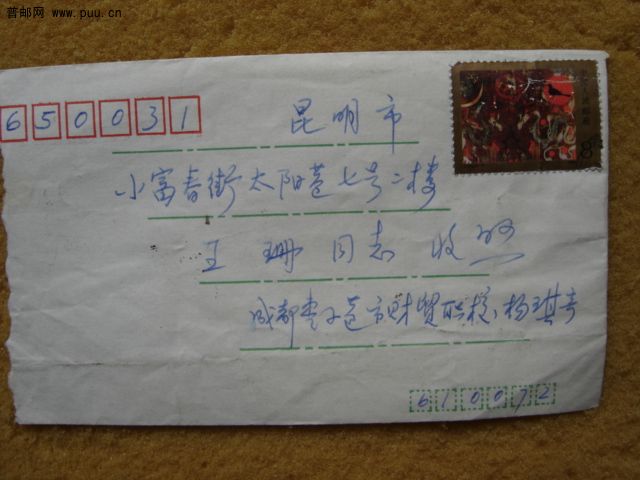 普邮网 www.puu.cn
650031
昆明市
小富春街太阳巷七号二楼
王珊同志收
成都枣子巷市财贸职校 杨琪
610072
8